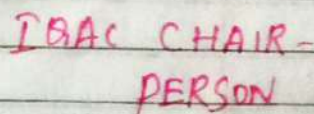 IQAC CHAIR-
PERSON